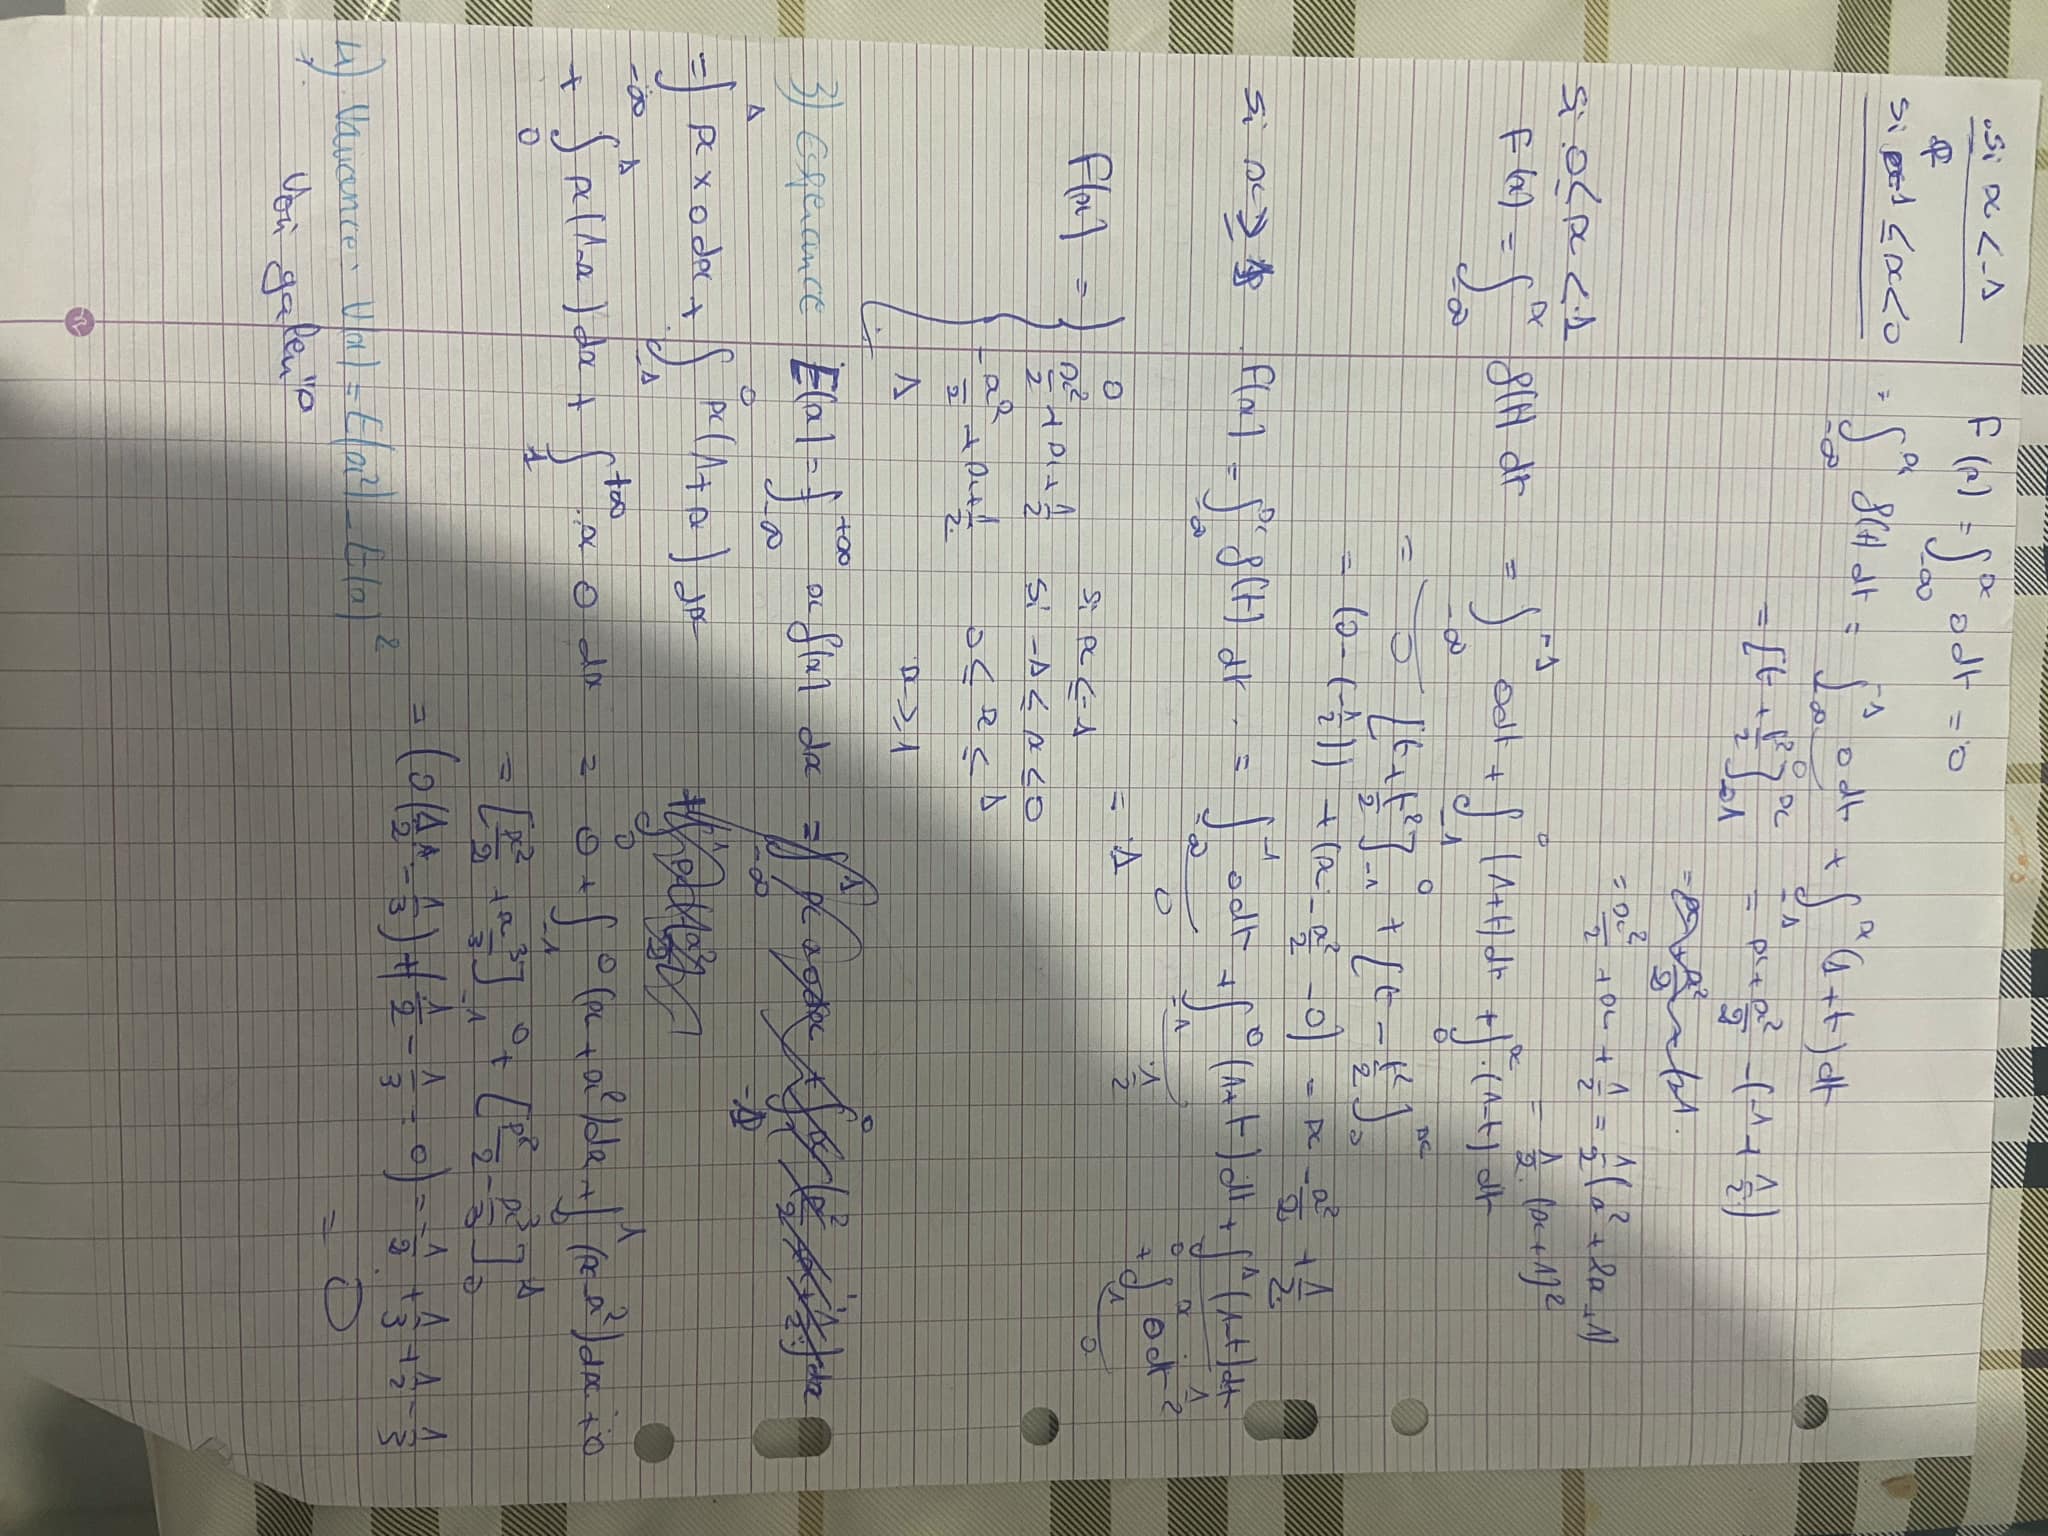 si x < -1 F(x) = ∫_{-∞}^{x} 0 dt = 0
si -1 ≤ x < 0 = ∫_{-∞}^{x} f(t) dt = ∫_{-∞}^{-1} 0 dt + ∫_{-1}^{x} (1+t) dt
0
= [t + t²/2]_{-1}^{x} = x + x²/2 - (-1 + 1/2)
= x²/2 + x + 1/2 = 1/2 (x² + 2x + 1)
= 1/2 . (x+1)²
Si 0 ≤ x < 1
F(x) = ∫_{-∞}^{x} f(t) dt = ∫_{-∞}^{-1} 0 dt + ∫_{-1}^{0} (1+t) dt + ∫_{0}^{x} (1-t) dt
= 0 [t + t²/2]_{-1}^{0} + [t - t²/2]_{0}^{x}
= (0 - (-1/2)) + (x - x²/2 - 0) = x - x²/2 + 1/2
Si x ≥ 1 F(x) = ∫_{-∞}^{x} f(t) dt = ∫_{-∞}^{-1} 0 dt + ∫_{-1}^{0} (1+t) dt + ∫_{0}^{1} (1-t) dt
0 1/2 1/2
+ ∫_{1}^{x} 0 dt
0
= 1
F(x) = { 0 si x ≤ -1
x²/2 + x + 1/2 si -1 ≤ x ≤ 0
-x²/2 + x + 1/2 0 ≤ x ≤ 1
1 x ≥ 1
3) Esperance E(x) = ∫_{-∞}^{+∞} x f(x) dx
= ∫_{-∞}^{1} x × 0 dx + ∫_{-1}^{0} x(1+x) dx
+ ∫_{0}^{1} x(1-x) dx + ∫_{1}^{+∞} x 0 dx = 0 + ∫_{-1}^{0} (x + x²) dx + ∫_{0}^{1} (x - x²) dx + 0
= [x²/2 + x³/3]_{-1}^{0} + [x²/2 - x³/3]_{0}^{1}
= (0 (1/2 - 1/3) + (1/2 - 1/3 - 0) = -1/2 + 1/3 + 1/2 - 1/3
= 0
4) Variance. V(x) = E(x²) - E(x)²
Voir